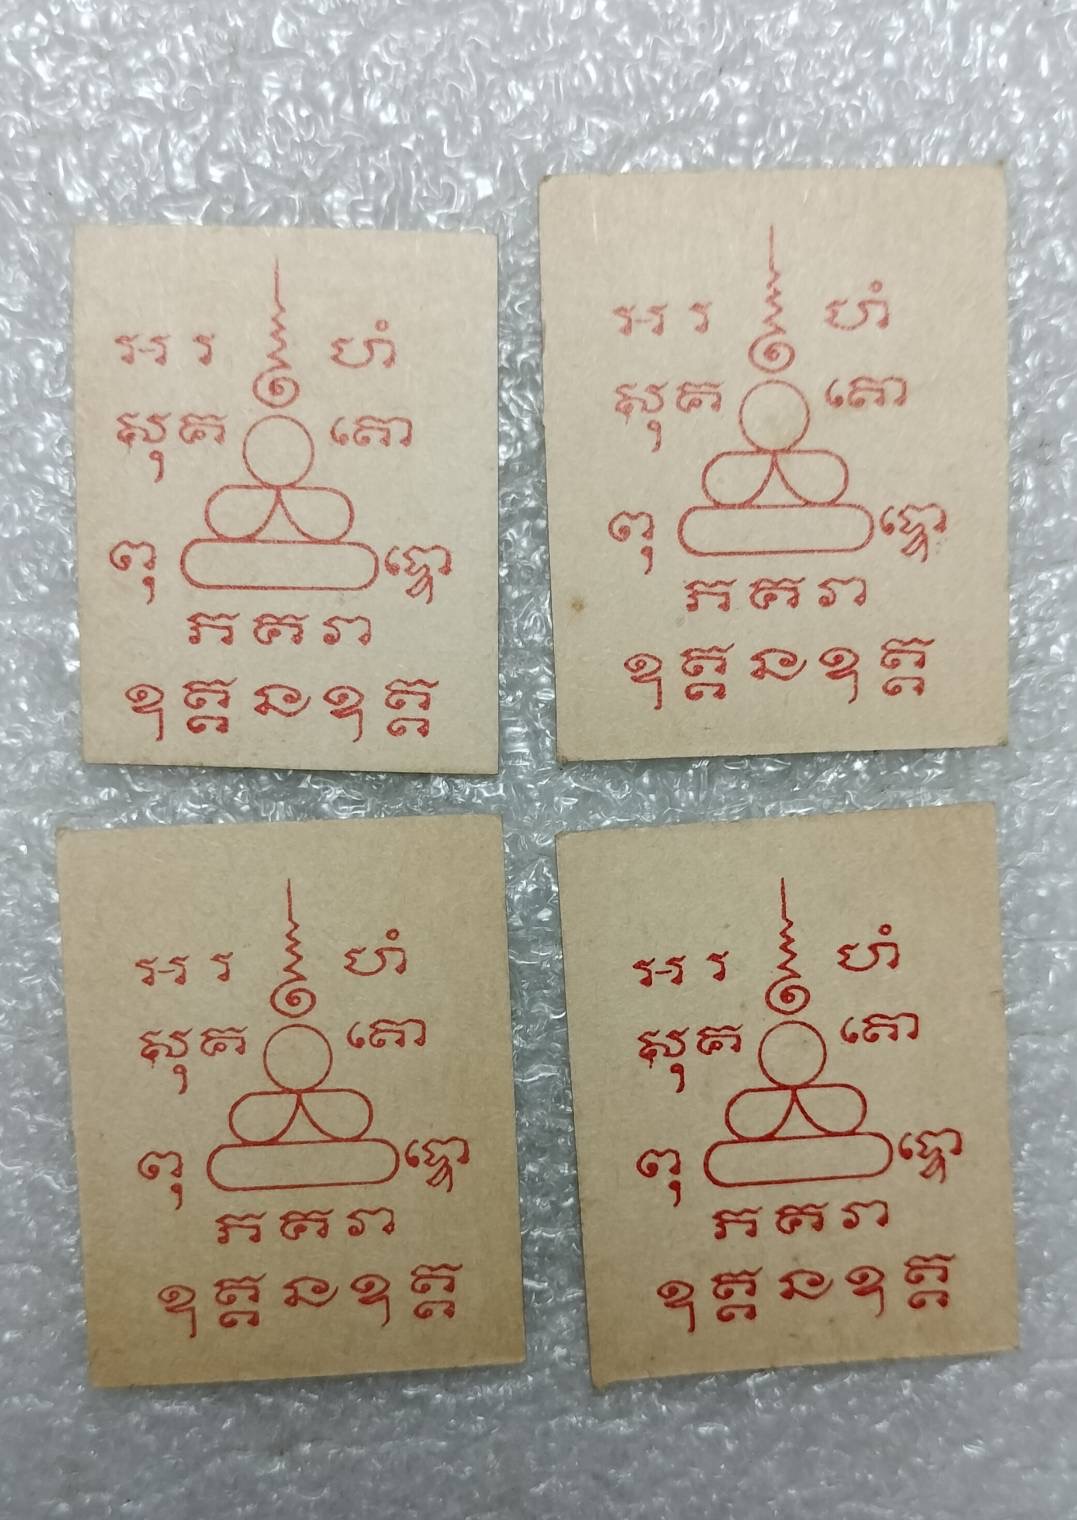 អ រ ហំ
សុ គ តោ
ពុ ទ្ធោ
ភ គ វា
ឧ ត្ត ន ឧ ត្ត
អ រ ហំ
សុ គ តោ
ពុ ទ្ធោ
ភ គ វា
ឧ ត្ត ន ឧ ត្ត
អ រ ហំ
សុ គ តោ
ពុ ទ្ធោ
ភ គ វា
ឧ ត្ត ន ឧ ត្ត
អ រ ហំ
សុ គ តោ
ពុ ទ្ធោ
ភ គ វា
ឧ ត្ត ន ឧ ត្ត